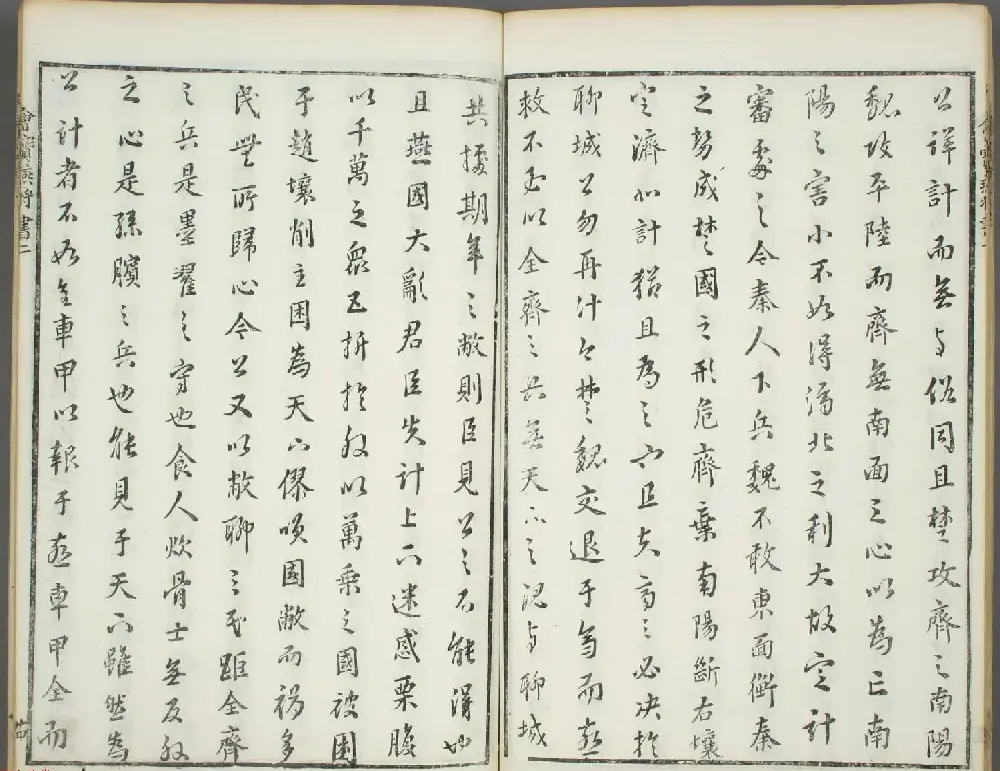 公詳計而無与俗同且楚攻齊之南陽
魏攻平陸而齊無南面之心以為亡南
陽之害小不如得濟北之利大故定計
審處之今秦人下兵魏不敢東面衡秦
之勢成楚國之形危齊棄南陽斷右壤
定濟北計猶且為之也且夫齊之必決於
聊城公勿再計今楚魏交退于齊而燕
救不至以全齊之兵無天下之規与聊城
共據期年之敝則臣見公之不能得也
且燕國大亂君臣失計上下迷惑栗腹
以千萬之衆五折於外以萬乘之國被圍
于趙壤削主困為天下僇笑國敝而禍多
民無所歸心今公又以敝聊之民距全齊
之兵是墨翟之守也食人炊骨士無反外
之心是孫臏之兵也能見于天下雖然為
公計者不如全車甲以報于燕車甲全而
燕將書二